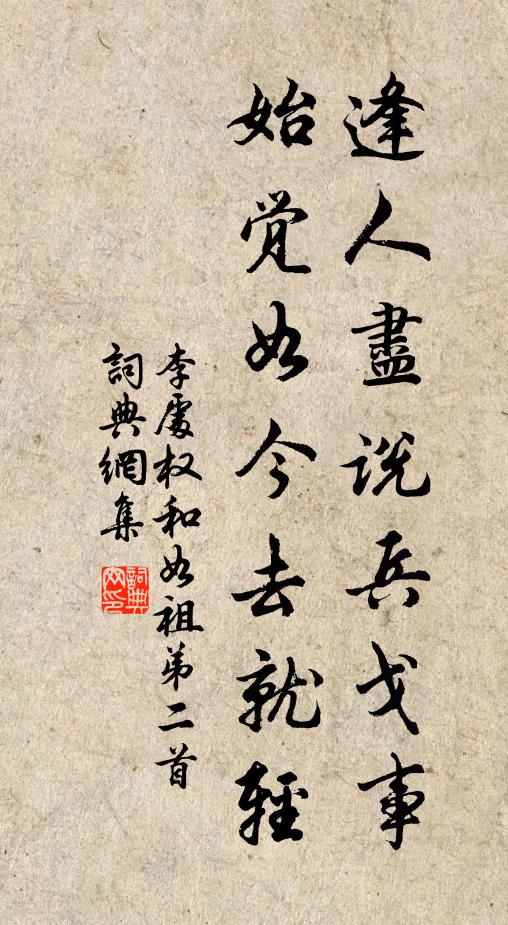 逢人盡說兵戈事
始覺如今去就輕
李處权和如祖第二首
詞典網集
詞典
网印